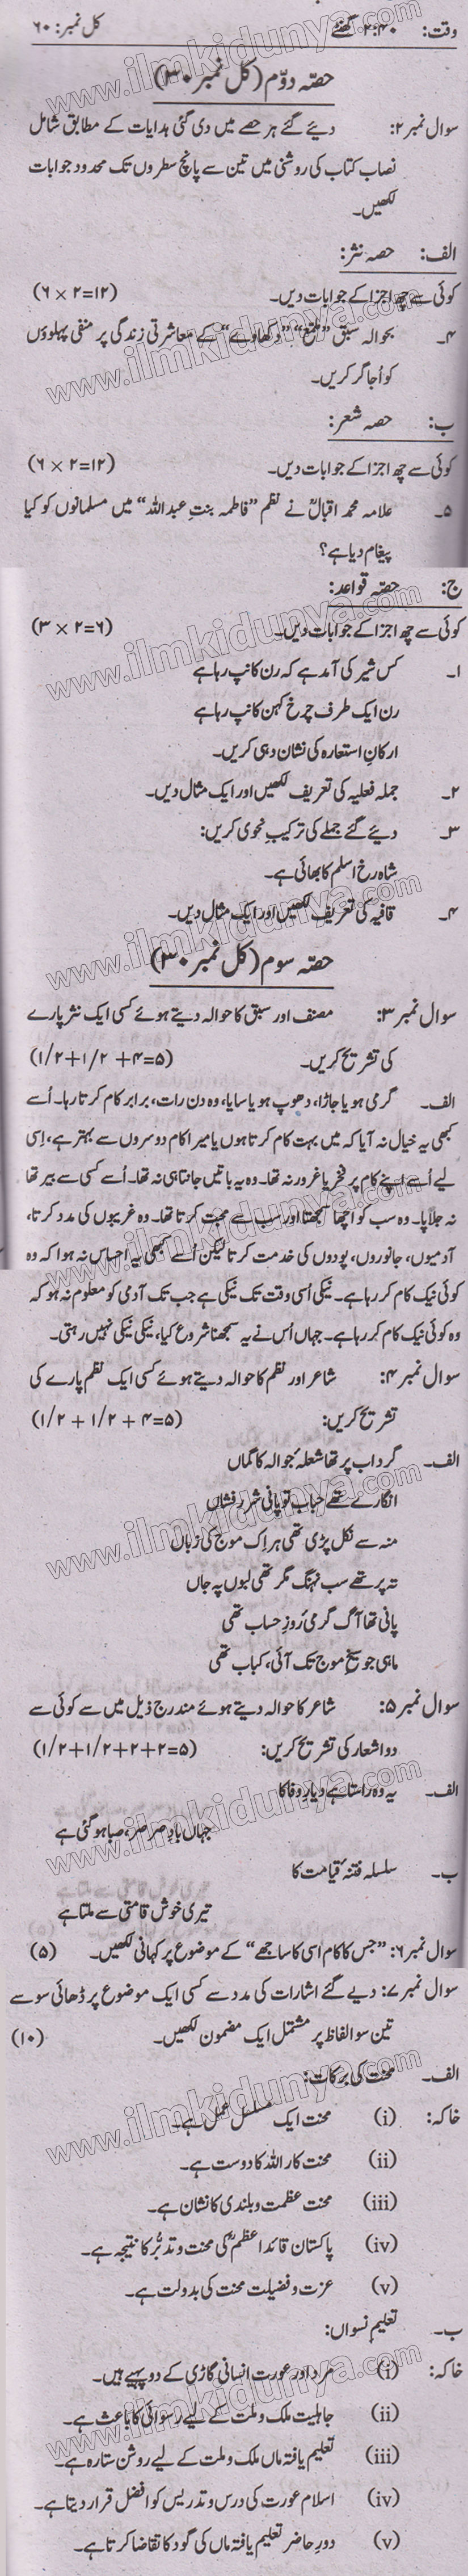 وقت: ۲:۴۰ گھنٹے کل نمبر: ۶۰
حصہ دوّم (کل نمبر ۳۰)
سوال نمبر ۲: دیئے گئے ہر حصے میں دی گئی ہدایات کے مطابق شامل
نصاب کتاب کی روشنی میں تین سے پانچ سطروں تک محدود جوابات
لکھیں۔
الف: حصہ نثر:
کوئی سے چھ اجزا کے جوابات دیں۔ (۶ × ۲=۱۲)
۴۔ بحوالہ سبق ”ملمع“ ”دکھاوے“ کے معاشرتی زندگی پر منفی پہلوؤں
کو اُجاگر کریں۔
ب: حصہ شعر:
کوئی سے چھ اجزا کے جوابات دیں۔ (۶ × ۲=۱۲)
۵۔ علامہ محمد اقبالؒ نے نظم ”فاطمہ بنتِ عبداللہ“ میں مسلمانوں کو کیا
پیغام دیا ہے؟
ج: حصہ قواعد:
کوئی سے چھ اجزا کے جوابات دیں۔ (۳ × ۲=۶)
۱۔ کس شیر کی آمد ہے کہ رن کانپ رہا ہے
رن ایک طرف چرخ کہن کانپ رہا ہے
ارکانِ استعارہ کی نشان دہی کریں۔
۲۔ جملہ فعلیہ کی تعریف لکھیں اور ایک مثال دیں۔
۳۔ دیئے گئے جملے کی ترکیب نحوی کریں:
شاہ رخ اسلم کا بھائی ہے۔
۴۔ قافیہ کی تعریف لکھیں اور ایک مثال دیں۔
حصہ سوم (کل نمبر ۳۰)
سوال نمبر ۳: مصنف اور سبق کا حوالہ دیتے ہوئے کسی ایک نثر پارے
کی تشریح کریں۔ (۱/۲+۱/۲ +۴=۵)
الف۔ گرمی ہو یا جاڑا، دھوپ ہو یا سایا، وہ دن رات، برابر کام کرتا رہا۔ اُسے
کبھی یہ خیال نہ آیا کہ میں بہت کام کرتا ہوں یا میرا کام دوسروں سے بہتر ہے، اِسی
لیے اُسے اپنے کام پر فخر یا غرور نہ تھا۔ وہ یہ باتیں جانتا ہی نہ تھا۔ اُسے کسی سے بیر تھا
نہ جلاپا۔ وہ سب کو اچھا سمجھتا اور سب سے محبت کرتا تھا۔ وہ غریبوں کی مدد کرتا،
آدمیوں، جانوروں، پودوں کی خدمت کرتا لیکن اُسے کبھی یہ احساس نہ ہوا کہ وہ
کوئی نیک کام کر رہا ہے۔ نیکی اُسی وقت تک نیکی ہے جب تک آدمی کو معلوم نہ ہو کہ
وہ کوئی نیک کام کر رہا ہے۔ جہاں اُس نے یہ سمجھنا شروع کیا، نیکی نیکی نہیں رہتی۔
سوال نمبر ۴: شاعر اور نظم کا حوالہ دیتے ہوئے کسی ایک نظم پارے کی
تشریح کریں: (۱/۲ + ۱/۲ + ۴=۵)
الف۔ گرداب پر تھا شعلۂ جوالہ کا گماں
انگارے تھے حباب تو پانی شرر فشاں
منہ سے نکل پڑی تھی ہر اِک موج کی زباں
تہ پر تھے سب نہنگ مگر تھی لبوں پہ جاں
پانی تھا آگ گرمیِ روزِ حساب تھی
ماہی جو سیخ موج تک آئی، کباب تھی
سوال نمبر ۵: شاعر کا حوالہ دیتے ہوئے مندرج ذیل میں سے کوئی سے
دو اشعار کی تشریح کریں: (۱/۲+۱/۲+۲+۲=۵)
الف۔ یہ وہ راستا ہے دیارِ وفا کا
جہاں بادِ صرصر، صبا ہوگئی ہے
ب۔ سلسلہ فتنۂ قیامت کا
تیری خوش قامتی سے ملتا ہے
سوال نمبر ۶: ”جس کا کام اسی کا ساجھے“ کے موضوع پر کہانی لکھیں۔ (۵)
سوال نمبر ۷: دیے گئے اشارات کی مدد سے کسی ایک موضوع پر ڈھائی سو سے
تین سو الفاظ پر مشتمل ایک مضمون لکھیں۔ (۱۰)
الف۔ محنت کی برکات:
خاکہ: (i) محنت ایک مسلسل عمل ہے۔
(ii) محنت کار اللہ کا دوست ہے۔
(iii) محنت عظمت و بلندی کا نشان ہے۔
(iv) پاکستان قائداعظمؒ کی محنت و تدبّر کا نتیجہ ہے۔
(v) عزت و فضیلت محنت کی بدولت ہے۔
ب۔ تعلیم نسواں:
خاکہ: (i) مرد اور عورت انسانی گاڑی کے دو پہیے ہیں۔
(ii) جاہلیت ملک و ملت کے لیے رسوائی کا باعث ہے۔
(iii) تعلیم یافتہ ماں ملک و ملت کے لیے روشن ستارہ ہے۔
(iv) اسلام عورت کی درس و تدریس کو افضل قرار دیتا ہے۔
(v) دورِ حاضر تعلیم یافتہ ماں کی گود کا تقاضا کرتا ہے۔
www.ilmkidunya.com